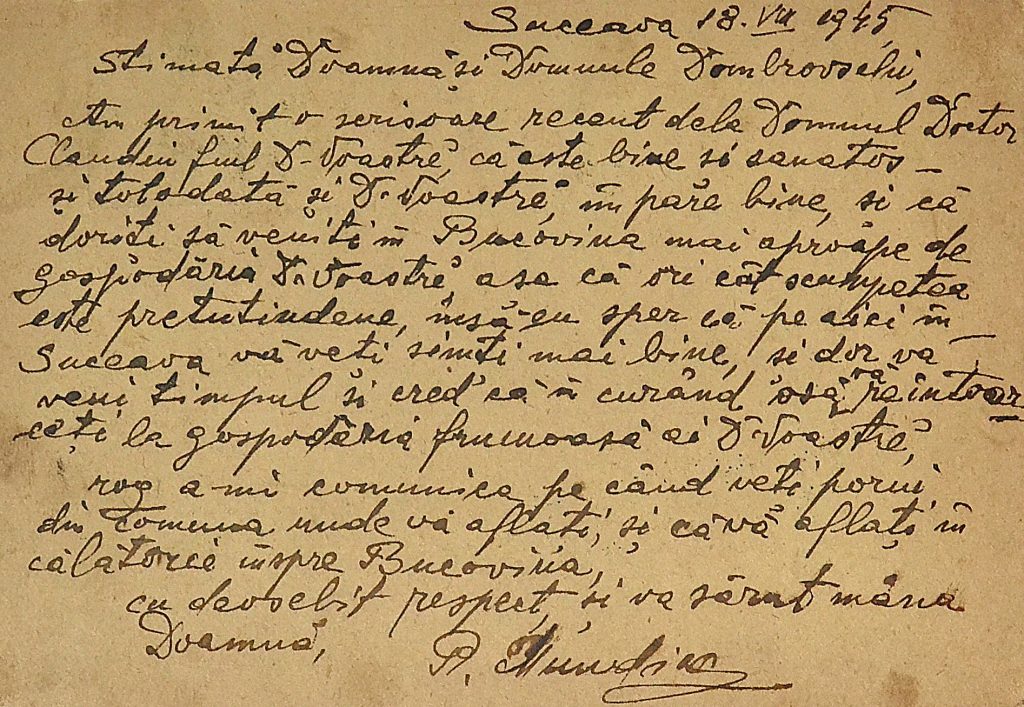 Suceava 18. VII 1945,
Stimată Doamnă si Domnule Dombrovschi,
Am primit o scrisoare recent dela Domnul Doctor
Claudiu fiul D-Voastre, că este bine si sanatos
si totodată si D-Voastre, îm păre bine, si că
doriti să veniti în Bucovina mai aproape de
gospodăria D-Voastre, asa că ori cât scumpetea
este pretutindene, însă eu sper că pe aici în
Suceava vă veti simti mai bine, si dor va
veni timpul si cred că în curând osă vă reîntoar
ceti la gospodăria frumoasă ai D-Voastre,
rog a-mi comunica pe când veti porni
din comuna unde vă aflati, si că vă aflați în
călătorie înspre Bucovina,
cu deosebit respect, si va sărut mâna
Doamnă,
P.